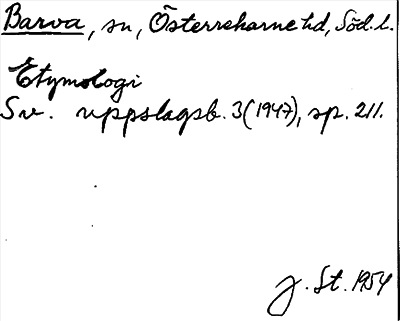 Barva, sn, Österrekarne hd, Söd. l.
Etymologi
Sv. uppslagsb. 3 (1947), sp. 211.
J. St. 1954